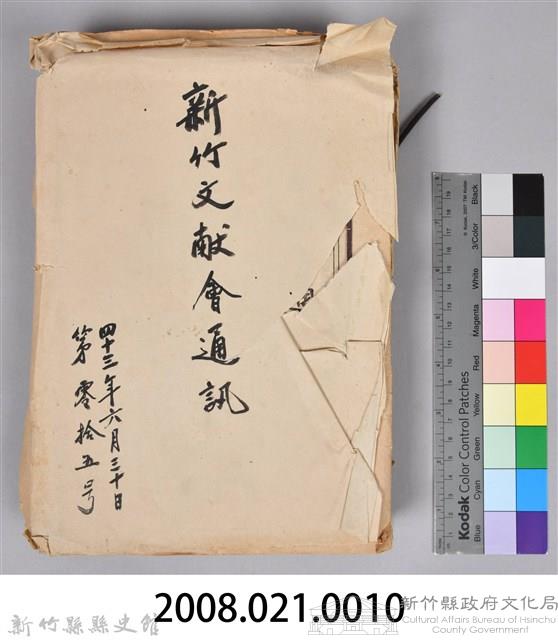 新竹文献會通訊
四十三年六月三十日
第零拾五号
Kodak Color Control Patches
Blue Cyan Green Yellow Red Magenta White 3/Color Black
2008.021.0010
新竹縣縣史館
新竹縣政府文化局
Cultural Affairs Bureau of Hsinchu
County Government